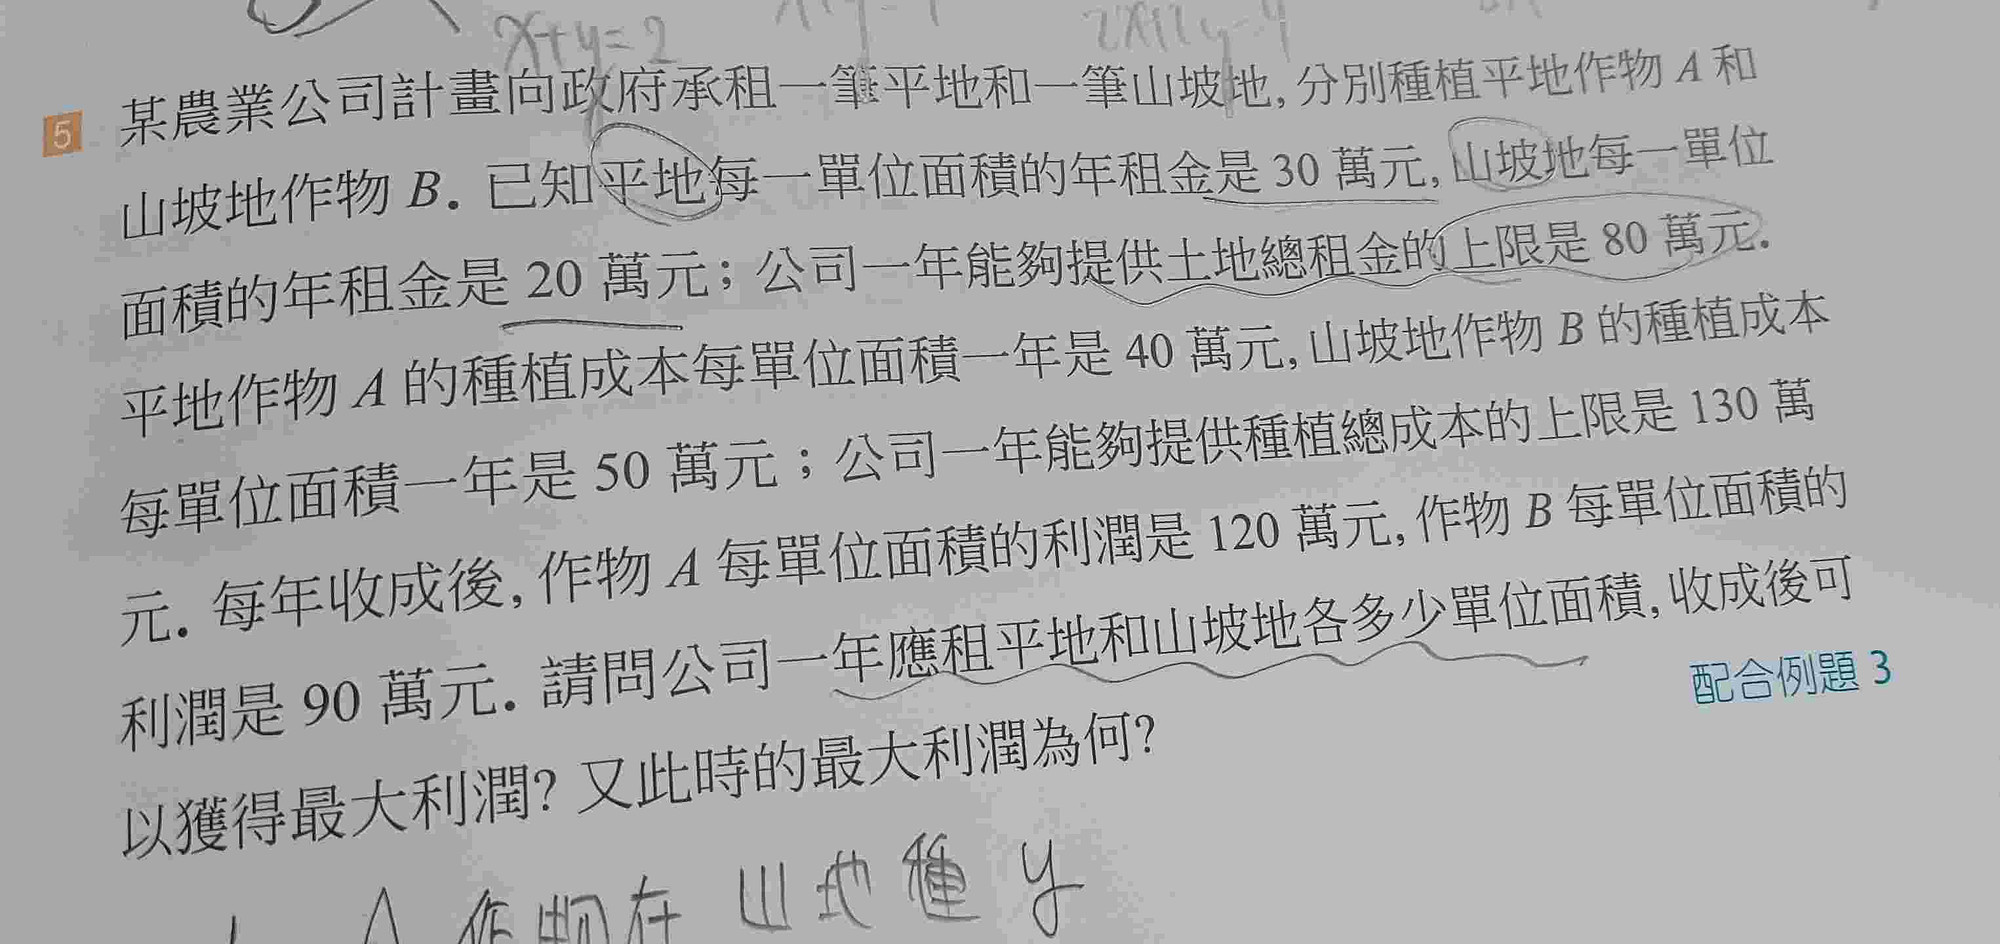 x+y=2
5 某農業公司計畫向政府承租一筆平地和一筆山坡地, 分別種植平地作物 A 和
山坡地作物 B. 已知平地每一單位面積的年租金是 30 萬元, 山坡地每一單位
面積的年租金是 20 萬元; 公司一年能夠提供土地總租金的上限是 80 萬元.
平地作物 A 的種植成本每單位面積一年是 40 萬元, 山坡地作物 B 的種植成本
每單位面積一年是 50 萬元; 公司一年能夠提供種植總成本的上限是 130 萬
元. 每年收成後, 作物 A 每單位面積的利潤是 120 萬元, 作物 B 每單位面積的
利潤是 90 萬元. 請問公司一年應租平地和山坡地各多少單位面積, 收成後可
以獲得最大利潤? 又此時的最大利潤為何?
配合例題 3
A 作物在 山地種 y